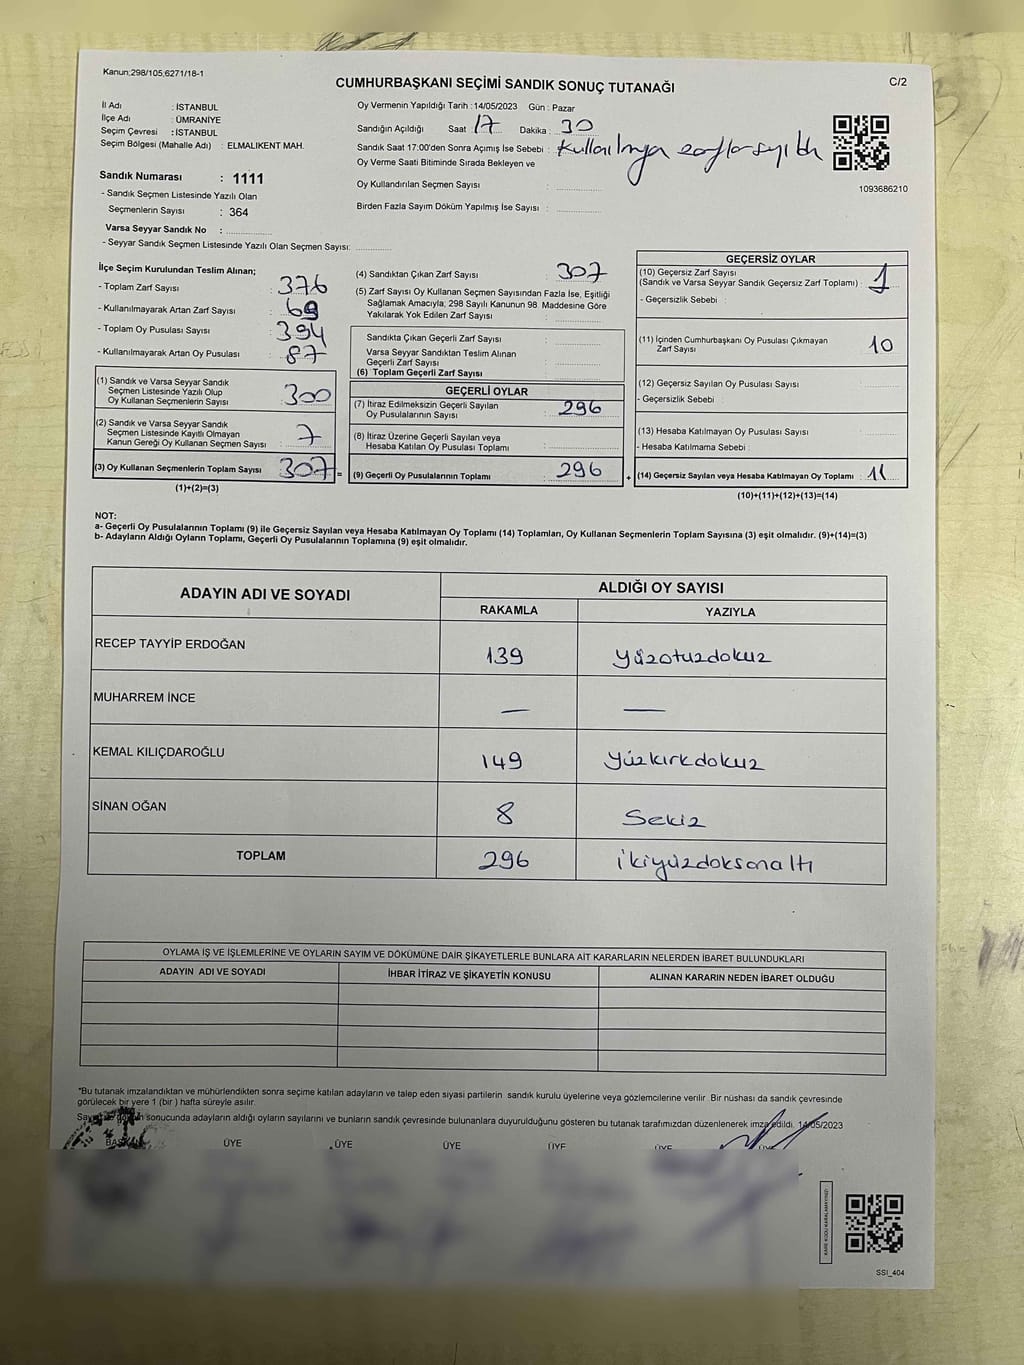 Kanun;298/105;6271/18-1
CUMHURBAŞKANI SEÇİMİ SANDIK SONUÇ TUTANAĞI
C/2
İl Adı : İSTANBUL
İlçe Adı : ÜMRANİYE
Seçim Çevresi : İSTANBUL
Seçim Bölgesi (Mahalle Adı) : ELMALIKENT MAH.
Oy Vermenin Yapıldığı Tarih : 14/05/2023 Gün : Pazar
Sandığın Açıldığı Saat : 17 Dakika : 30
Sandık Saat 17:00'den Sonra Açımış İse Sebebi : Kullanılmayan zarflar sayıldı
Oy Verme Saati Bitiminde Sırada Bekleyen ve
Oy Kullandırılan Seçmen Sayısı :
Birden Fazla Sayım Döküm Yapılmış İse Sayısı :
1093686210
Sandık Numarası : 1111
- Sandık Seçmen Listesinde Yazılı Olan
Seçmenlerin Sayısı : 364
Varsa Seyyar Sandık No :
- Seyyar Sandık Seçmen Listesinde Yazılı Olan Seçmen Sayısı:
İlçe Seçim Kurulundan Teslim Alınan;
- Toplam Zarf Sayısı : 376
- Kullanılmayarak Artan Zarf Sayısı : 69
- Toplam Oy Pusulası Sayısı : 394
- Kullanılmayarak Artan Oy Pusulası : 87
(1) Sandık ve Varsa Seyyar Sandık
Seçmen Listesinde Yazılı Olup
Oy Kullanan Seçmenlerin Sayısı : 300
(2) Sandık ve Varsa Seyyar Sandık
Seçmen Listesinde Kayıtlı Olmayan
Kanun Gereği Oy Kullanan Seçmen Sayısı : 7
(3) Oy Kullanan Seçmenlerin Toplam Sayısı 307 =
(1)+(2)=(3)
(4) Sandıktan Çıkan Zarf Sayısı : 307
(5) Zarf Sayısı Oy Kullanan Seçmen Sayısından Fazla İse, Eşitliği
Sağlamak Amacıyla; 298 Sayılı Kanunun 98. Maddesine Göre
Yakılarak Yok Edilen Zarf Sayısı :
Sandıkta Çıkan Geçerli Zarf Sayısı :
Varsa Seyyar Sandıktan Teslim Alınan
Geçerli Zarf Sayısı :
(6) Toplam Geçerli Zarf Sayısı :
GEÇERLİ OYLAR
(7) İtiraz Edilmeksizin Geçerli Sayılan
Oy Pusulalarının Sayısı : 296
(8) İtiraz Üzerine Geçerli Sayılan veya
Hesaba Katılan Oy Pusulası Toplamı :
(9) Geçerli Oy Pusulalarının Toplamı : 296 +
GEÇERSİZ OYLAR
(10) Geçersiz Zarf Sayısı
(Sandık ve Varsa Seyyar Sandık Geçersiz Zarf Toplamı) : 1
- Geçersizlik Sebebi :
(11) İçinden Cumhurbaşkanı Oy Pusulası Çıkmayan
Zarf Sayısı : 10
(12) Geçersiz Sayılan Oy Pusulası Sayısı :
- Geçersizlik Sebebi :
(13) Hesaba Katılmayan Oy Pusulası Sayısı :
- Hesaba Katılmama Sebebi :
(14) Geçersiz Sayılan veya Hesaba Katılmayan Oy Toplamı : 11
(10)+(11)+(12)+(13)=(14)
NOT:
a- Geçerli Oy Pusulalarının Toplamı (9) ile Geçersiz Sayılan veya Hesaba Katılmayan Oy Toplamı (14) Toplamları, Oy Kullanan Seçmenlerin Toplam Sayısına (3) eşit olmalıdır. (9)+(14)=(3)
b- Adayların Aldığı Oyların Toplamı, Geçerli Oy Pusulalarının Toplamına (9) eşit olmalıdır.
ADAYIN ADI VE SOYADI ALDIĞI OY SAYISI
RAKAMLA YAZIYLA
RECEP TAYYİP ERDOĞAN 139 yüzotuzdokuz
MUHARREM İNCE — —
KEMAL KILIÇDAROĞLU 149 yüzkırkdokuz
SİNAN OĞAN 8 Sekiz
TOPLAM 296 ikiyüzdoksanaltı
OYLAMA İŞ VE İŞLEMLERİNE VE OYLARIN SAYIM VE DÖKÜMÜNE DAİR ŞİKAYETLERLE BUNLARA AİT KARARLARIN NELERDEN İBARET BULUNDUKLARI
ADAYIN ADI VE SOYADI İHBAR İTİRAZ VE ŞİKAYETİN KONUSU ALINAN KARARIN NEDEN İBARET OLDUĞU
*Bu tutanak imzalandıktan ve mühürlendikten sonra seçime katılan adayların ve talep eden siyasi partilerin sandık kurulu üyelerine veya gözlemcilerine verilir. Bir nüshası da sandık çevresinde
görülecek bir yere 1 (bir ) hafta süreyle asılır.
sonucunda adayların aldığı oyların sayılarını ve bunların sandık çevresinde bulunanlara duyurulduğunu gösteren bu tutanak tarafımızdan düzenlenerek imza edildi. 14/05/2023
BAŞKAN ÜYE ÜYE ÜYE ÜYE ÜYE ÜYE
KARE KODU KARALAMAYINIZ!
SSI_404